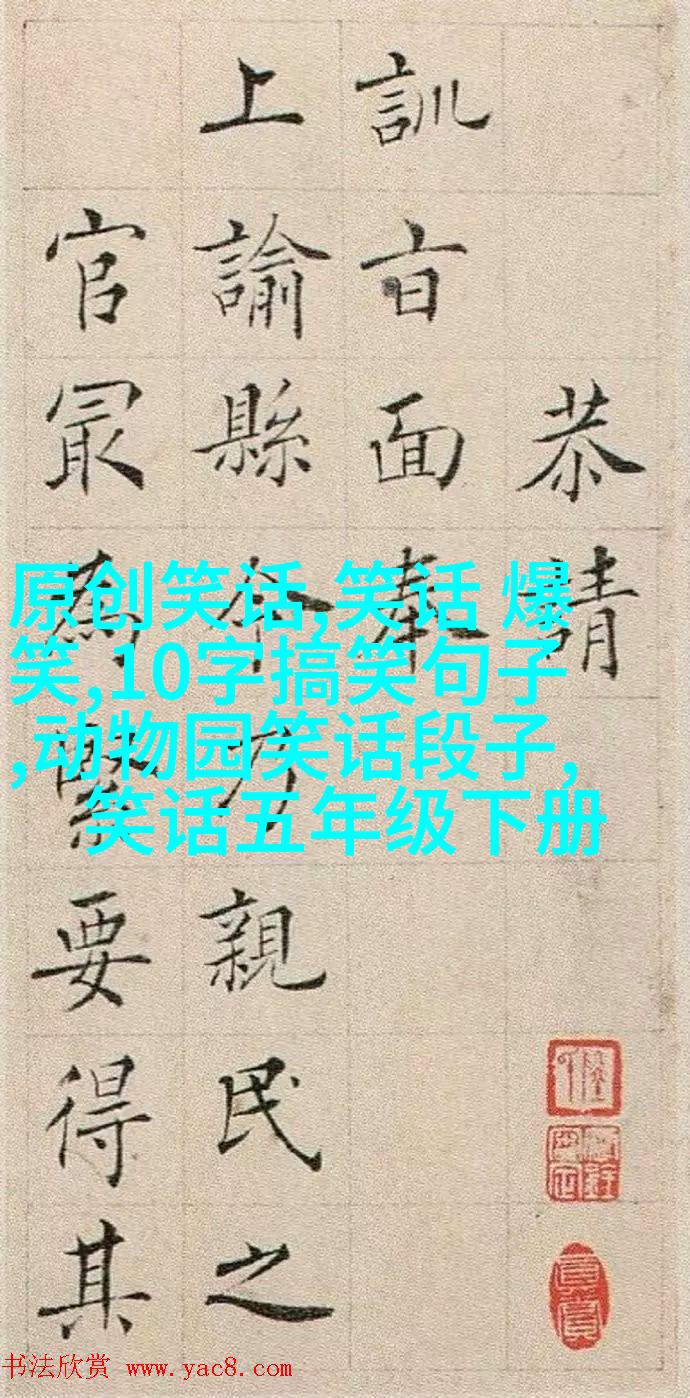 恭請
訓旨面奉
上諭縣令乃親民之
官冣為緊要得其
原创笑话,笑话 爆
笑,10字搞笑句子
,动物园笑话段子,
笑话五年级下册
书法欣赏 www.yac8.com